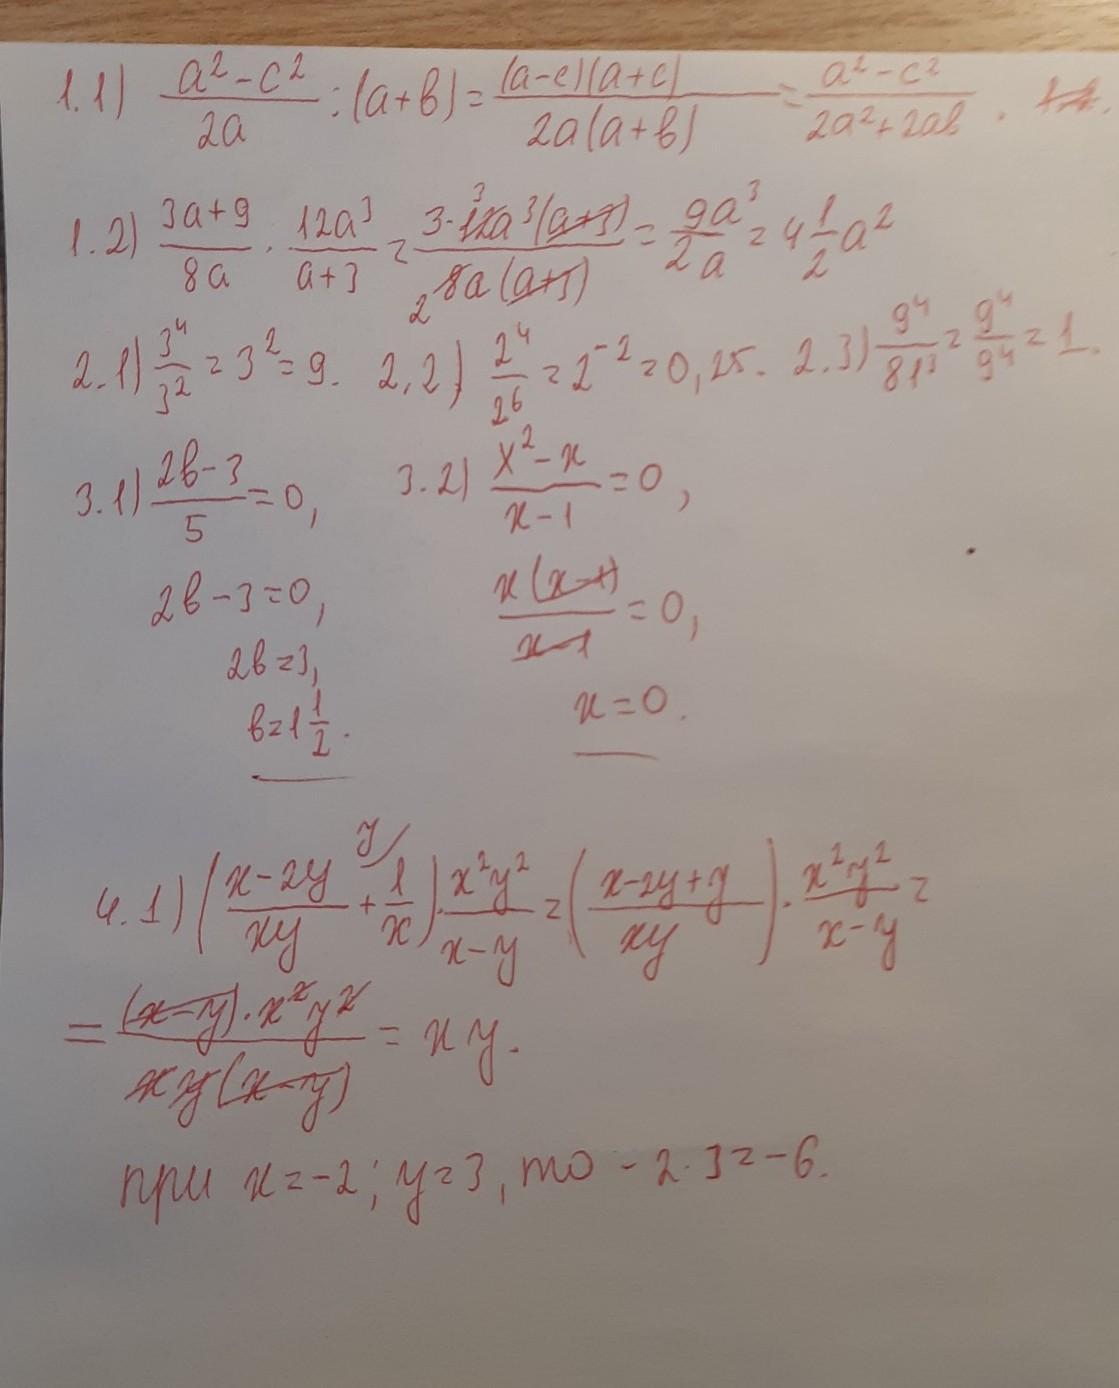 1.1) (a²-c²)/(2a) : (a+b) = ((a-c)(a+c))/(2a(a+b)) = (a²-c²)/(2a²+2ab).
1.2) (3a+9)/(8a) · (12a³)/(a+3) = (3·12a³(a+3))/(8a(a+3)) = (9a³)/(2a) = 4 1/2 a²
2.1) 3⁴/3² = 3² = 9. 2.2) 2⁴/2⁶ = 2⁻² = 0,25. 2.3) 9⁴/81³ = 9⁴/9⁴ = 1.
3.1) (2b-3)/5 = 0, 3.2) (x²-x)/(x-1) = 0,
2b-3=0, (x(x-1))/(x-1) = 0,
2b=3,
b=1 1/2. x=0.
4.1) ((x-2y)/(xy) + 1/x y/) · (x²y²)/(x-y) = ((x-2y+y)/(xy)) · (x²y²)/(x-y) =
= ((x-y)·x²y²)/(xy(x-y)) = xy.
при x=-2; y=3, то -2·3=-6.